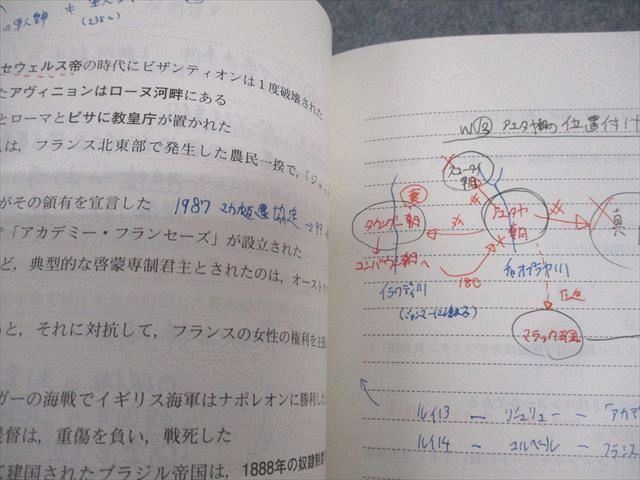 の軍人皇帝
(235～)
セウェルス帝の時代にビザンティオンは1度破壊された
たアヴィニョンはローヌ河畔にある
とローマとピサに教皇庁が置かれた
は，フランス北東部で発生した農民一揆で，「ジャッ
がその領有を宣言した 1987 マカオ返還協定
「アカデミー・フランセーズ」が設立された
ど，典型的な啓蒙専制君主とされたのは，オースト
と，それに対抗して，フランスの女性の権利を主
ガーの海戦でイギリス海軍はナポレオンに勝利した
提督は，重傷を負い，戦死した
建国されたブラジル帝国は，1888年の奴隷制
アユタヤ朝の位置付け
スコータイ朝
タウングー朝
アユタヤ朝
コンバウン朝へ
18C
イラワディ川
チャオプラヤ川
マラッカ王国
ルイ13 ー リシュリュー ー 「アカデ
ルイ14 ー コルベール ー フランス